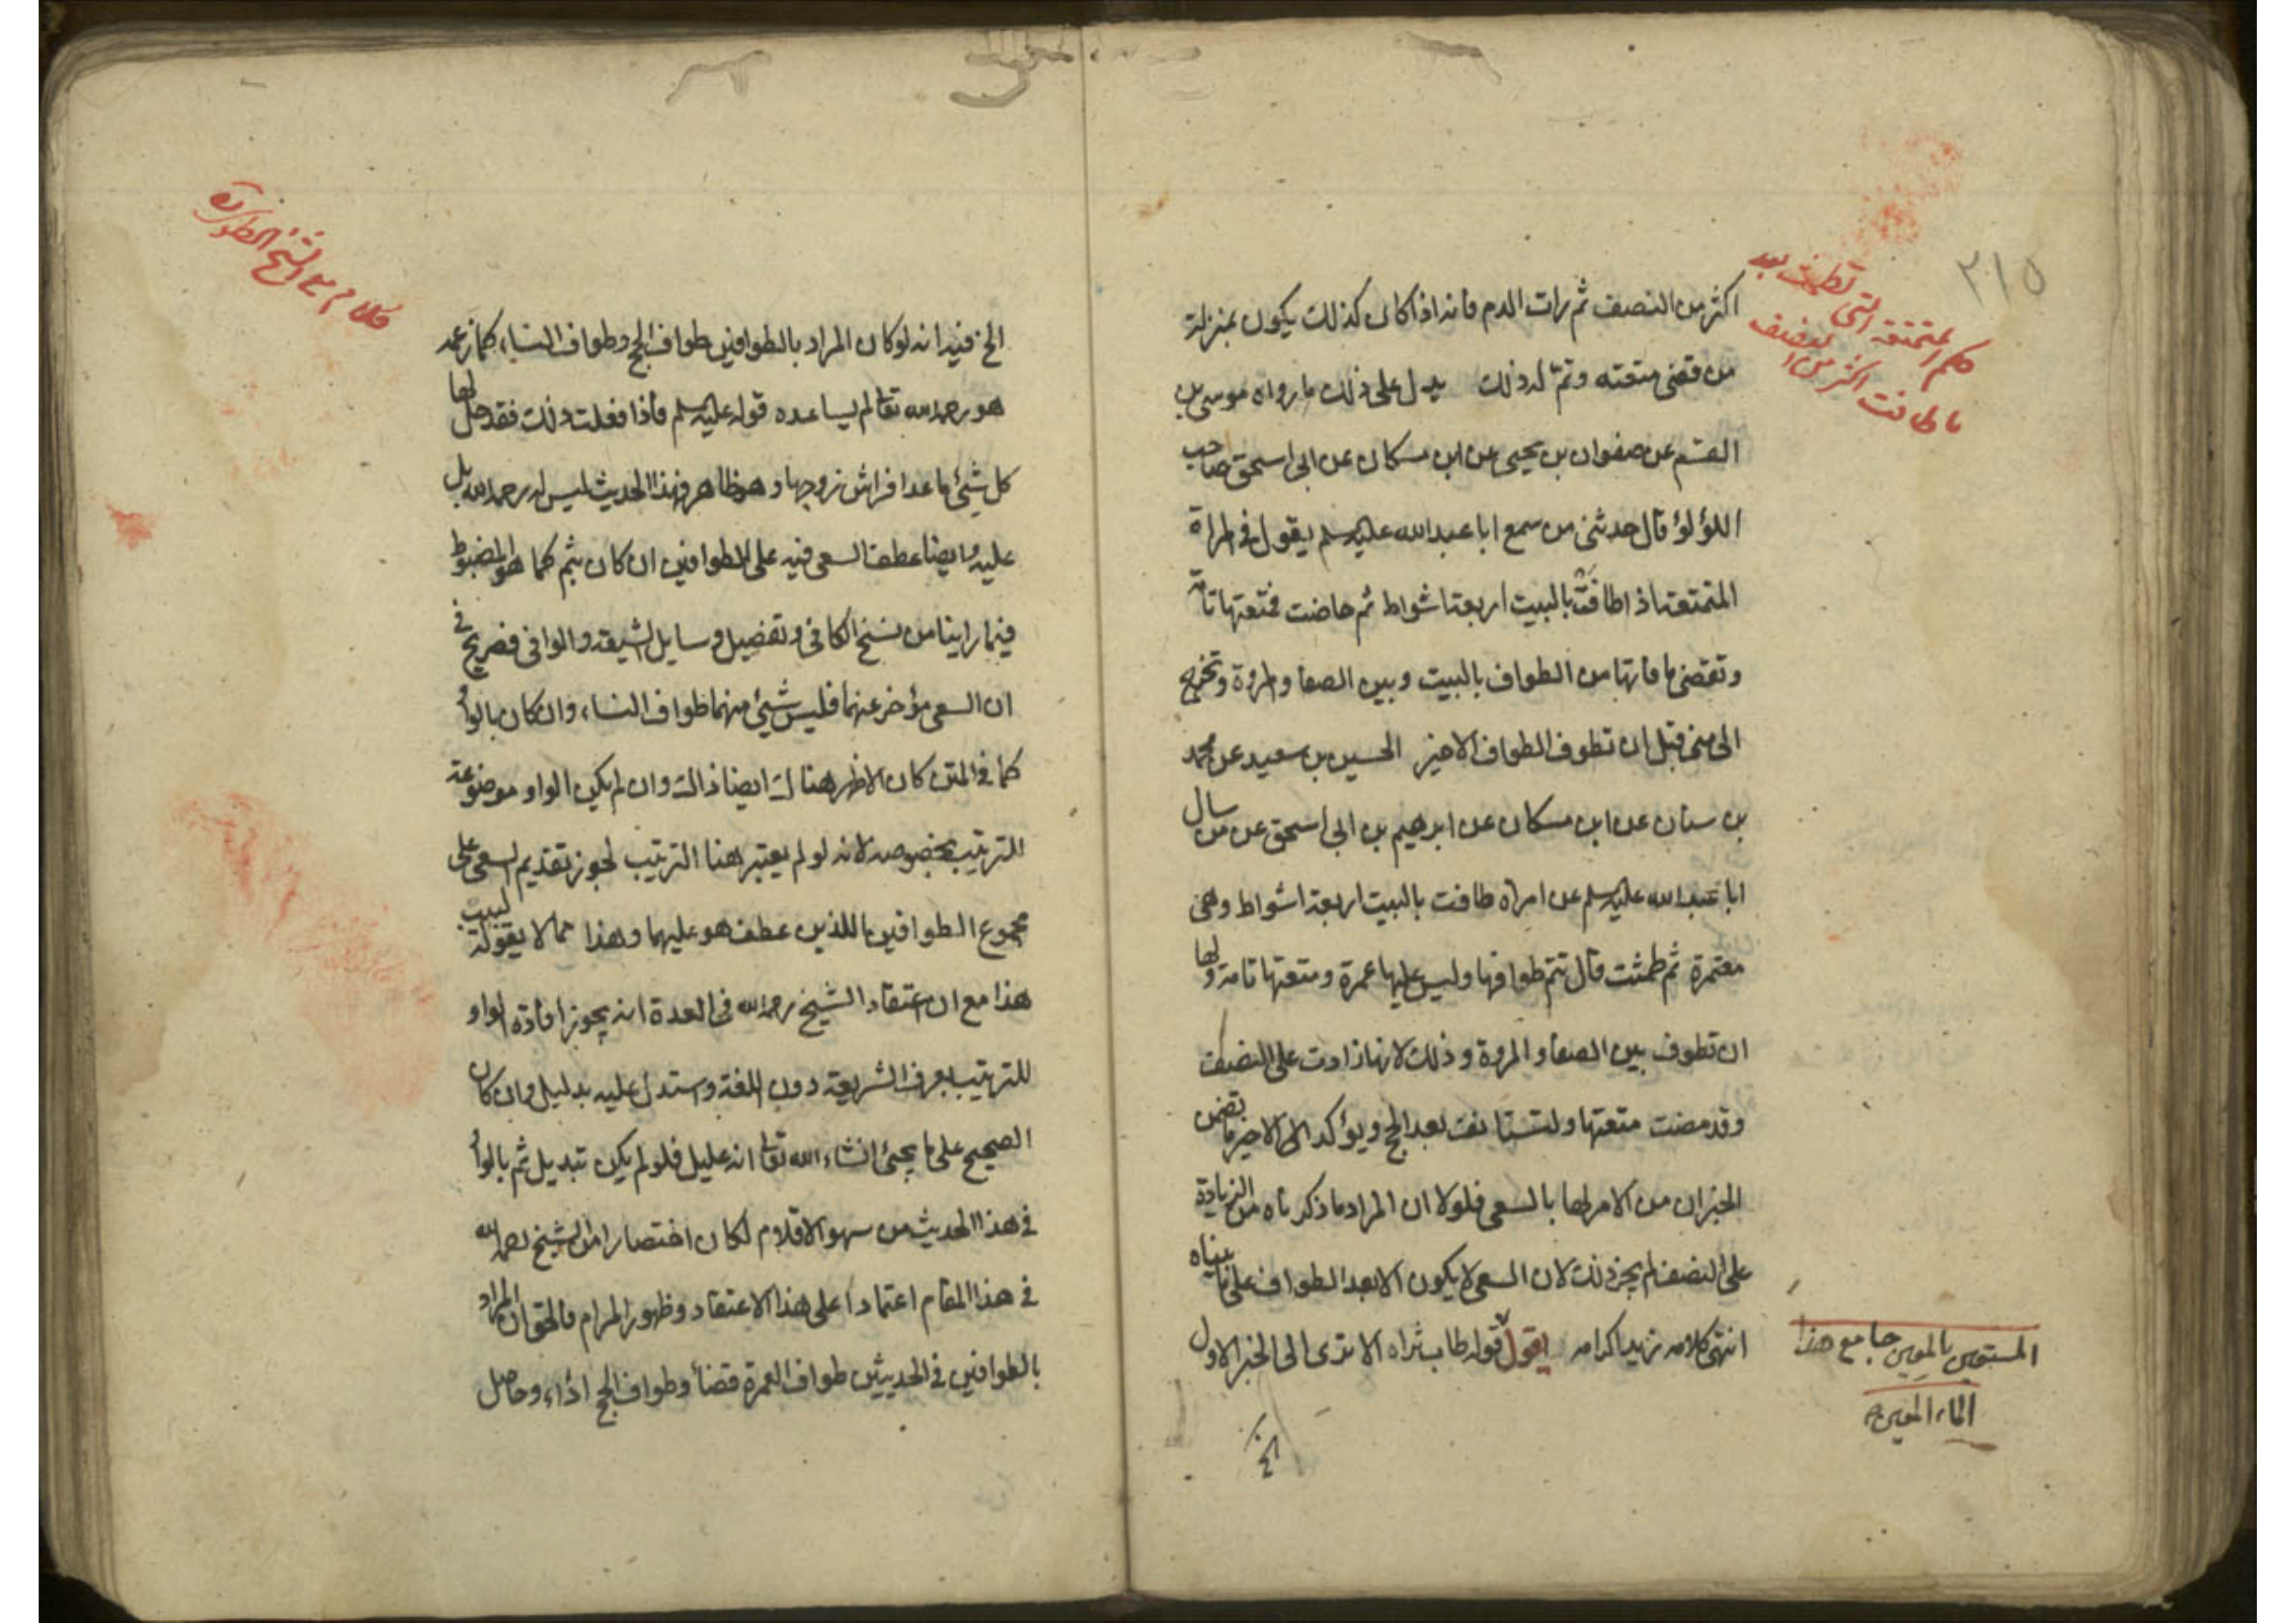 ٢١٥
حكم المتمتعة التى تطمث بعد
ما طافت اكثر من النصف
اكثر من النصف ثم رات الدم فانه اذا كان كذلك يكون بمنزلة
من قضى متعته وتم له ذلك يدل على ذلك ما رواه موسى بن
القسم عن صفوان بن يحيى عن ابن مسكان عن ابى اسحق صاحب
اللؤلؤ قال حدثنى من سمع ابا عبد الله عليه السلم يقول فى المراة
المتمتعة اذا طافت بالبيت اربعة اشواط ثم حاضت فمتعتها تامة
وتقضى ما فاتها من الطواف بالبيت وبين الصفا والمروة وتخرج
الى منى قبل ان تطوف الطواف الاخير الحسين بن سعيد عن محمد
بن سنان عن ابن مسكان عن ابرهيم بن ابى اسحق عن من سال
ابا عبد الله عليه السلم عن امراه طافت بالبيت اربعة اشواط وهى
معتمرة ثم طمثت قال تتم طوافها وليس عليها عمرة ومتعتها تامة ولها
ان تطوف بين الصفا والمروة وذلك لانها زادت على النصف
وقد مضت متعتها ولتستانف بعد الحج ويؤكد الاخير ما تضمن
الخبران من الامر لها بالسعى فلولا ان المراد ما ذكرناه من الزيادة
على النصف لم يجز ذلك لان السعى لا يكون الا بعد الطواف على ما بيناه
انتهى كلامه زيد اكرامه يقول قوله طاب ثراه الا ترى الى الخبر الاول
المستعين بالمعين جامع هذا
الماء المعين
كلام مع الشيخ الطوسى ره
الخ فيه انه لو كان المراد بالطوافين طواف الحج وطواف النساء كما زعمه
هو رحمه الله تعالى لم يساعده قوله عليه السلم فاذا فعلت ذلك فقد حل لها
كل شيئ ما عدا فراش زوجها وهو ظاهر فهذا الحديث ليس له رحمه الله بل
عليه وايضا عطف السعى فيه على الطوافين ان كان بثم كما هو المضبوط
فيما راينا من نسخ الكافى وتفصيل وسايل الشيعة والوافى فصريح فى
ان السعى مؤخر عنهما فليس شيئ منهما طواف النساء، وان كان بالواو
كما فى المتن كان الاظهر هناك ايضا ذلك وان لم يكن الواو موضوعة
للترتيب بخصوصه لانه لو لم يعتبر هنا الترتيب لجوز تقديم السعى على
مجموع الطوافين اللذين عطف هو عليهما وهذا مما لا يقوله لبيب
هذا مع ان اعتقاد الشيخ رحمه الله فى العدة انه يجوز افادة الواو
للترتيب بعرف الشريعة دون اللغة واستدل عليه بدليل وان كان
الصحيح على ما يجيئ انشاء الله تعالى انه عليل فلو لم يكن تبديل ثم بالواو
فى هذا الحديث من سهو الاقلام لكان اختصارا من الشيخ رحمه الله
فى هذا المقام اعتمادا على هذا الاعتقاد وظهور المرام فالحق ان المراد
بالطوافين فى الحديثين طواف العمرة قضاء وطواف الحج اداء وحاصل